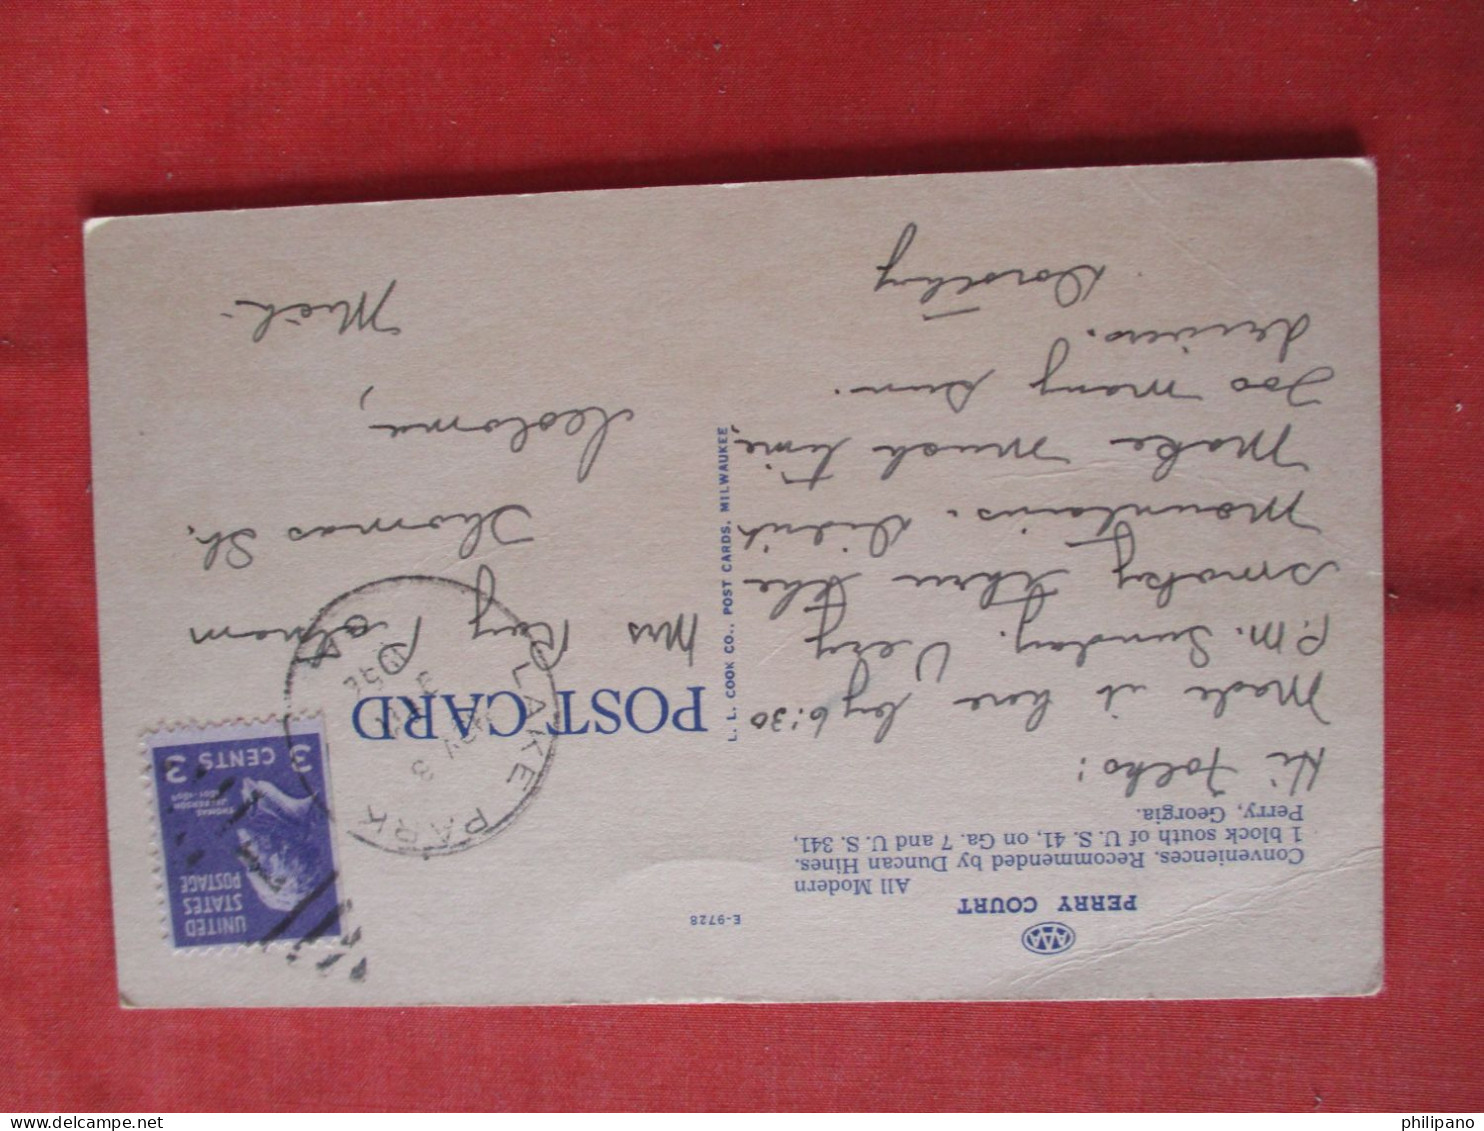 AAA
PERRY COURT
E-9728
All Modern
Conveniences. Recommended by Duncan Hines.
1 block south of U. S. 41, on Ga. 7 and U. S. 341,
Perry, Georgia.
Hi Folks:
Made it here by 6:30
P.M. Sunday. Very
smoky thru the
Mountains. Didn't
Make much time,
Too many Sun.
drivers.
Dorothy
L. L. COOK CO., POST CARDS, MILWAUKEE
POST CARD
UNITED
STATES
POSTAGE
THOMAS
JEFFERSON
3 CENTS 3
LAKE PARK
NOV 3
Mrs Ray
Thomas St.
Coloma,
Mich.
philipano